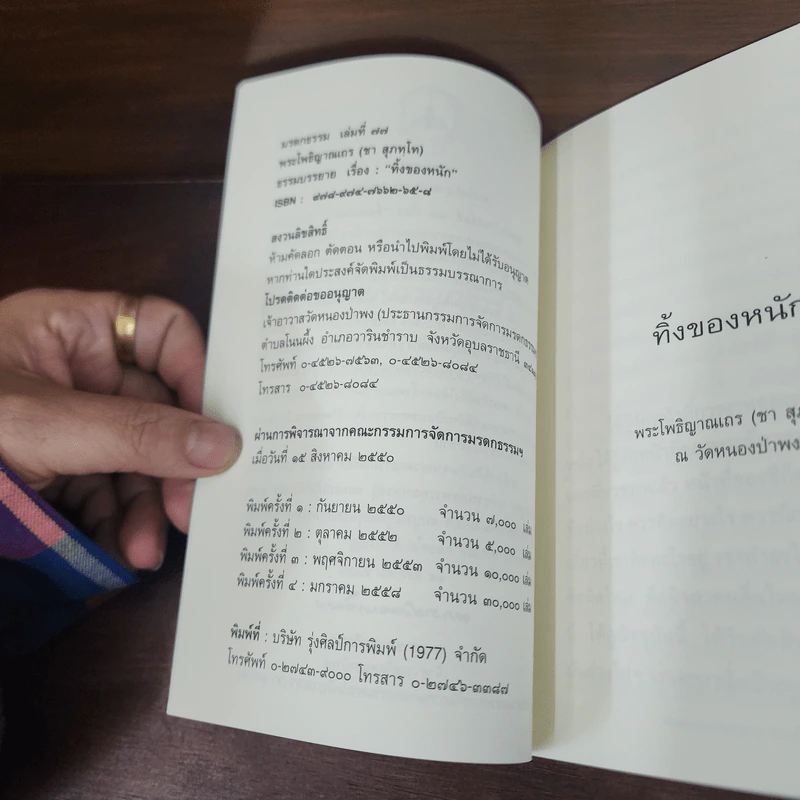 มรดกธรรม เล่มที่ ๗๗
พระโพธิญาณเถร (ชา สุภทฺโท)
ธรรมบรรยาย เรื่อง : "ทิ้งของหนัก"
ISBN : ๙๗๘-๙๗๔-๗๖๖๒-๖๕-๘
สงวนลิขสิทธิ์
ห้ามคัดลอก ตัดตอน หรือนำไปพิมพ์โดยไม่ได้รับอนุญาต
หากท่านใดประสงค์จัดพิมพ์เป็นธรรมบรรณาการ
โปรดติดต่อขออนุญาต
เจ้าอาวาสวัดหนองป่าพง (ประธานกรรมการจัดการมรดกธรรม
ตำบลโนนผึ้ง อำเภอวารินชำราบ จังหวัดอุบลราชธานี
โทรศัพท์ ๐-๔๕๒๖-๗๕๖๓, ๐-๔๕๒๖-๘๐๘๔
โทรสาร ๐-๔๕๒๖-๘๐๘๔
ผ่านการพิจารณาจากคณะกรรมการจัดการมรดกธรรมฯ
เมื่อวันที่ ๑๕ สิงหาคม ๒๕๕๐
พิมพ์ครั้งที่ ๑ : กันยายน ๒๕๕๐ จำนวน ๗,๐๐๐ เล่ม
พิมพ์ครั้งที่ ๒ : ตุลาคม ๒๕๕๒ จำนวน ๕,๐๐๐ เล่ม
พิมพ์ครั้งที่ ๓ : พฤศจิกายน ๒๕๕๓ จำนวน ๑๐,๐๐๐ เล่ม
พิมพ์ครั้งที่ ๔ : มกราคม ๒๕๕๘ จำนวน ๓๐,๐๐๐ เล่ม
พิมพ์ที่ : บริษัท รุ่งศิลป์การพิมพ์ (1977) จำกัด
โทรศัพท์ ๐-๒๗๔๓-๙๐๐๐ โทรสาร ๐-๒๗๔๖-๓๓๘๗
ทิ้งของหนัก
พระโพธิญาณเถร (ชา
ณ วัดหนองป่าพง